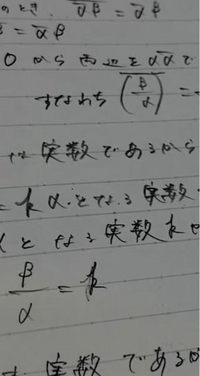 のとき. αβ̅ = α̅β
= α̅β
0 から 両辺を αα̅ で
すなわち (β/α)̅ =
は 実数であるから
= kα となる実数
となる実数 k
β/α = k
は 実数である